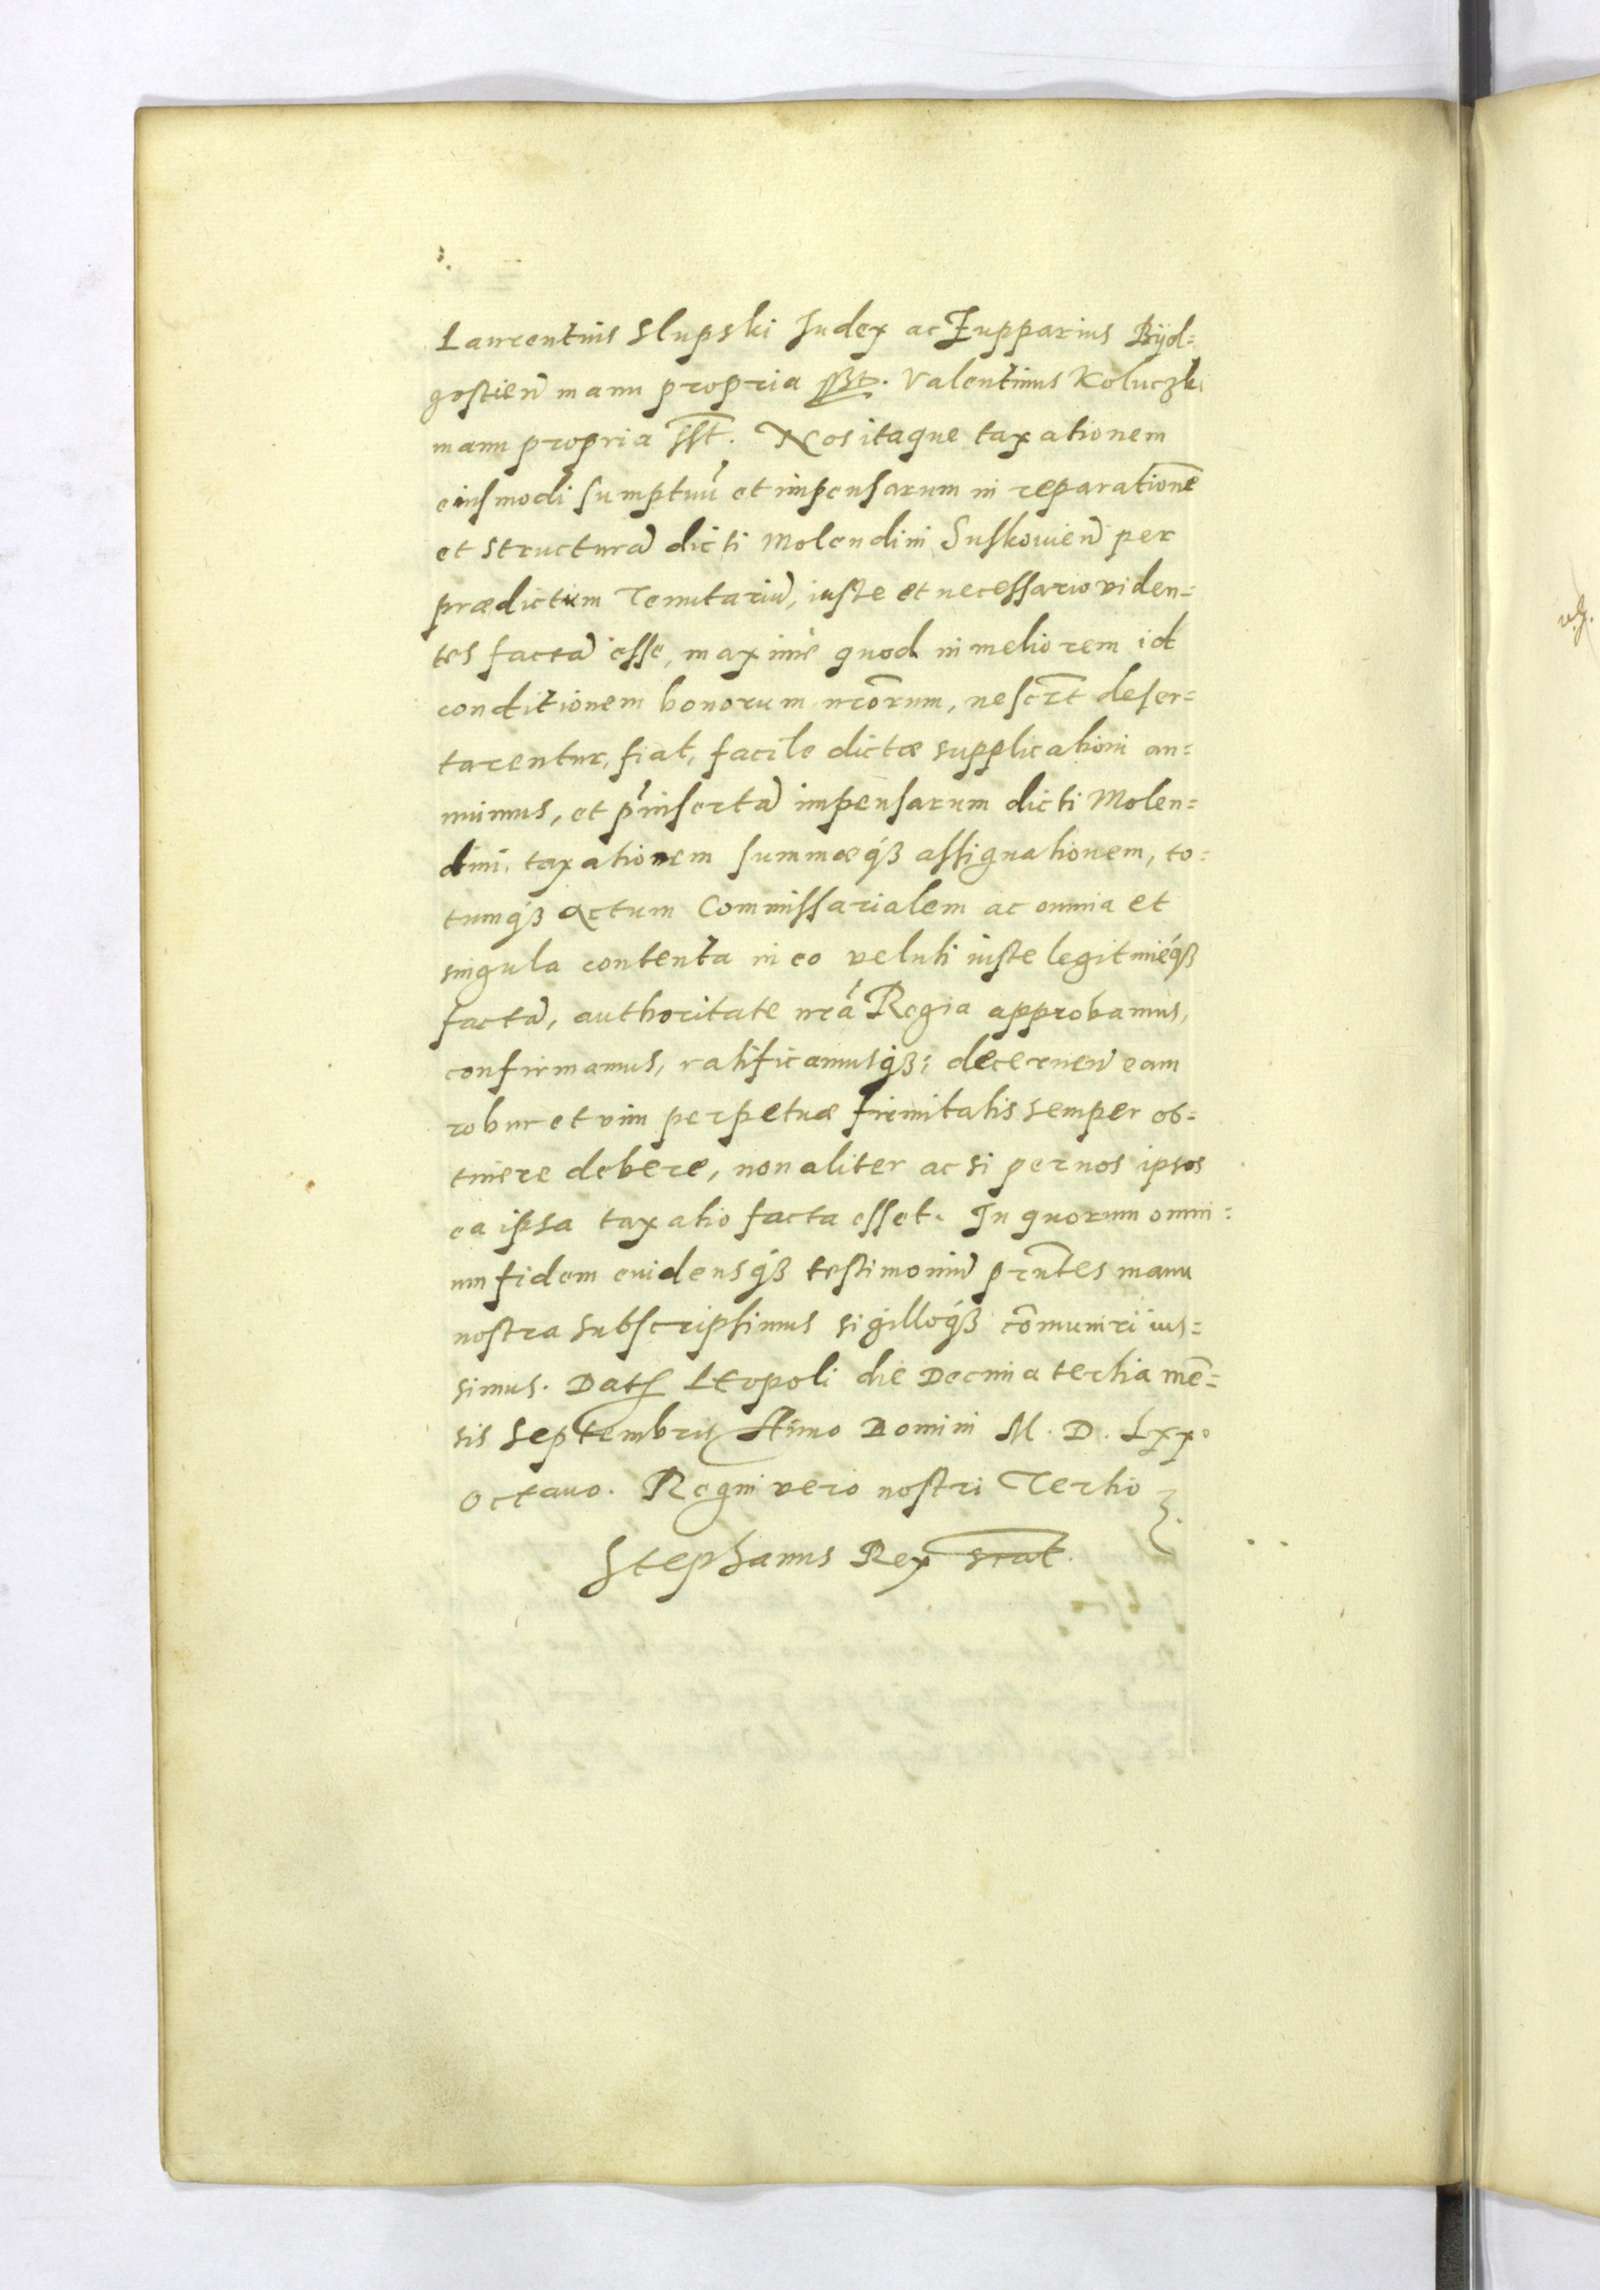 Laurentius Slupski Judex ac Zupparius Bÿd=
gostien̄ manu propria sst. Valentinus Koluczki
manu propria sst̄. Nos itaque taxationem
eiusmodi sumptuū et impensarum in reparationē
et structurā dicti Molendini Suskouien̄ per
prædictum Tenutariū, iuste et necessario viden=
tes factā esse, maxime quod in meliorem id
conditionem bonorum nr̄orum, ne scr̄t deser=
tarentur, fiat, facile dictæ supplicationi an=
nuimus, et p̄insertā impensarum dicti Molen=
dini, taxationem summæq́ꝫ assignationem, to=
tumq́ꝫ actum Commissarialem ac omnia et
singula contenta in eo veluti iuste legitimeq́ꝫ
factā, authoritate nr̄a Regia approbamus,
confirmamus, ratificamusq́ꝫ; decernen̄ eam
robur et vim perpetuæ firmitatis semper ob=
tinere debere, non aliter ac si per nos ipsos
ea ipsa taxatio facta esset. In quorum omni=
um fidem euidensq́ꝫ testimoniū pr̄ntes manu
nostra subscripsimus sigilloq́ꝫ cōmuniri ius=
simus. Dat Leopoli die Decima tertia mē=
sis Septembris Anno Domini M. D. Lxx.
Octauo. Regni vero nostri Tertio
Stephanus Rex